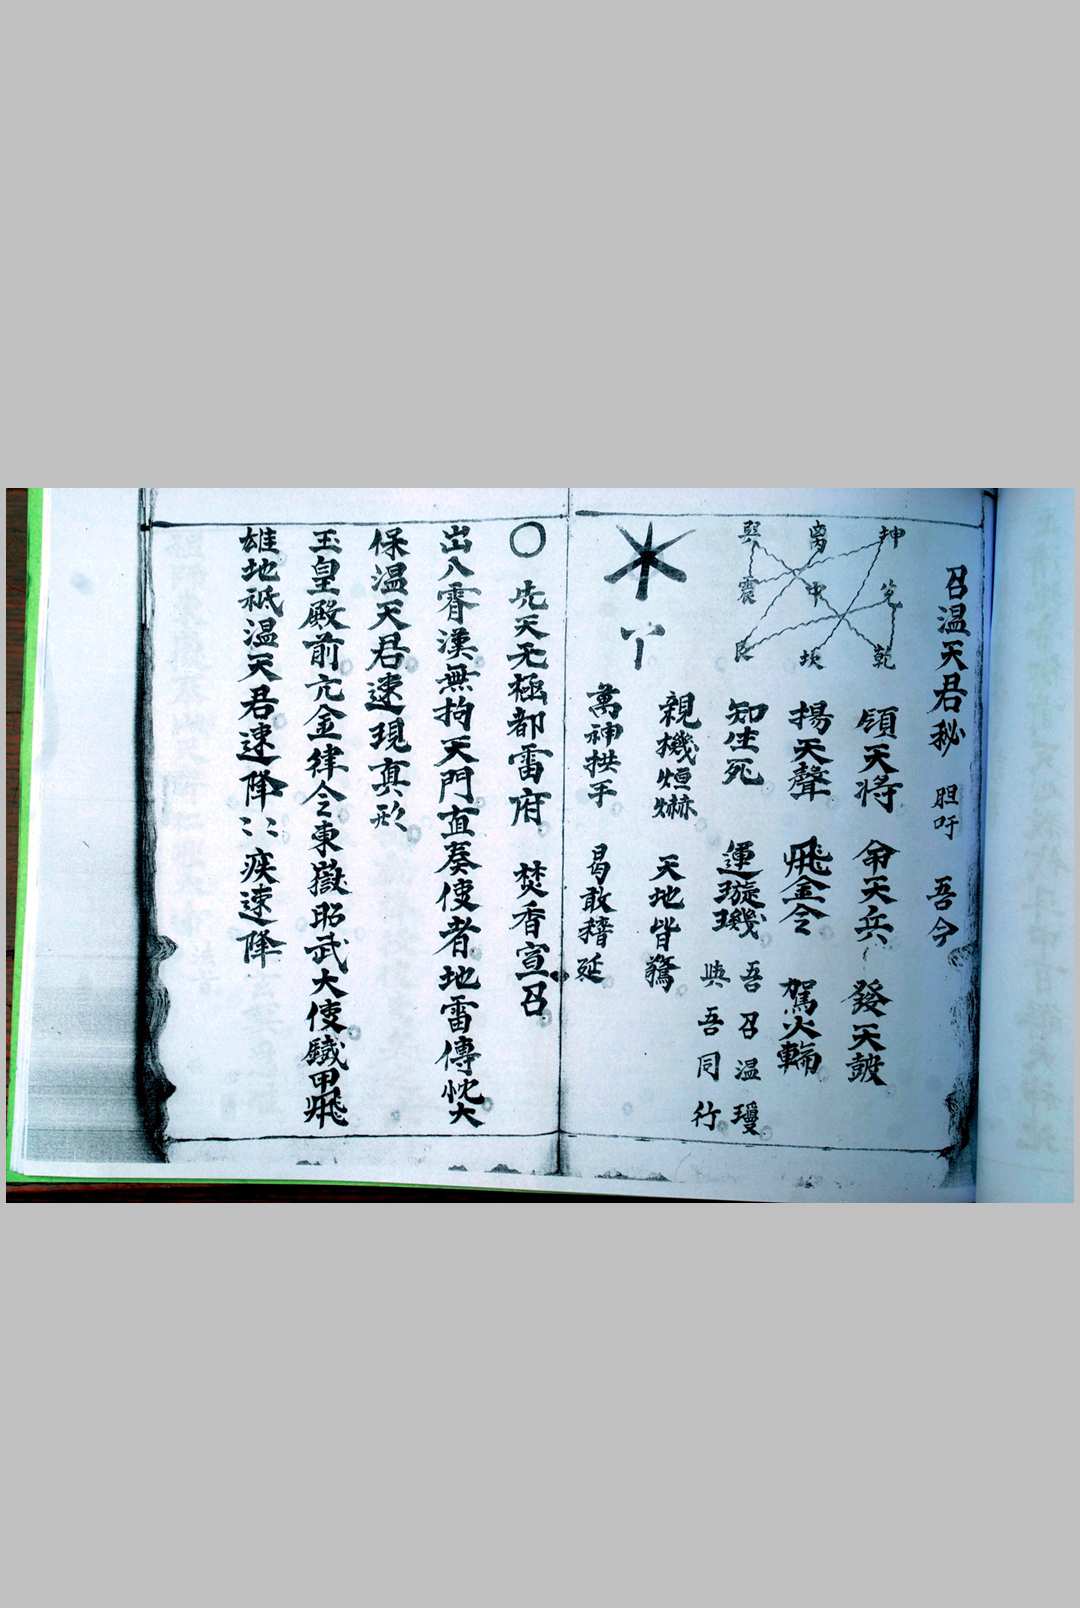 召温天君秘 胆吁 吾今
坤 兌 乾
离 中 坎
巽 震 艮
領天將 命天兵 發天皷
揚天聲 飛金令 駕火輪
知生死 運璇璣 吾召温瓊
與吾同行
親機烜赫 天地皆驚
萬神拱手 曷敢稽延
〇 先天无極都雷府 焚香宣召
出八霄漢無拘天門直奏使者地雷傳忱大
保温天君速現真形
玉皇殿前亢金律令東嶽昭武大使鐵甲飛
雄地祇温天君速降〻〻疾速降